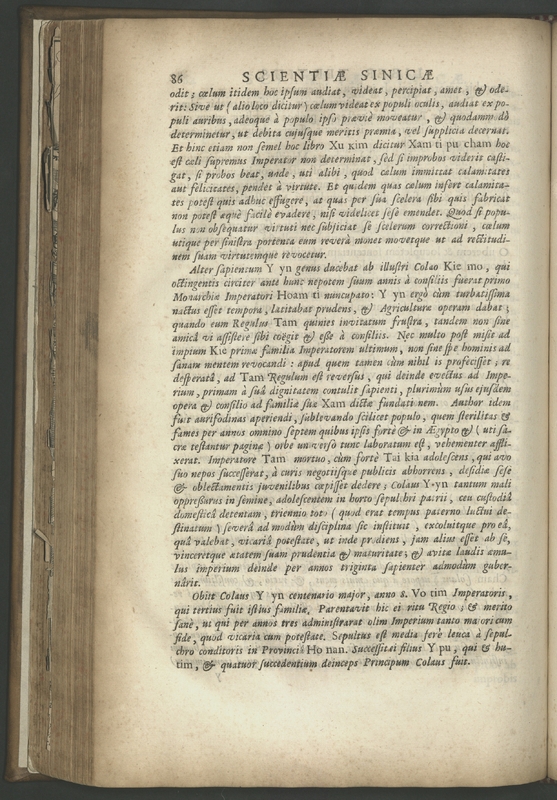 86 SCIENTIÆ SINICÆ
odit; cœlum itidem hoc ipsum audiat, videat, percipiat, amet, & ode-
rit: Sive ut (alio loco dicitur) cœlum videat ex populi oculis, audiat ex po-
puli auribus, adeoque à populo ipso præviè moveatur, & quodammodò
determinetur, ut debita cujusque meritis præmia, vel supplicia decernat.
Et hinc etiam non semel hoc libro Xu kim dicitur Xam ti pu cham hoc
est cœli supremus Imperator non determinat, sed si improbos viderit casti-
gat, si probos beat, unde, uti alibi, quod cœlum immittat calamitates
aut felicitates, pendet à virtute. Et quidem quas cœlum infert calamita-
tes potest quis adhuc effugere, at quas per sua scelera sibi quis fabricat
non potest æquè facilè evadere, nisi videlicet sese emendet. Quod si popu-
lus non obsequatur virtuti nec subjiciat se scelerum correctioni, cœlum
utique per sinistra portenta eum reverà monet movetque ut ad rectitudi-
nem suam virtutemque revocetur.
Alter sapientum Y yn genus ducebat ab illustri Colao Kie mo, qui
octingentis circiter ante hunc nepotem suum annis à consiliis fuerat primo
Monarchiæ Imperatori Hoam ti nuncupato: Y yn ergò cùm turbatissima
nactus esset tempora, latitabat prudens, & Agriculturæ operam dabat;
quando eum Regulus Tam quinies invitatum frustra, tandem non sine
amica vi assistere sibi coëgit & esse à consiliis. Nec multo post misit ad
impium Kie primæ familiæ Imperatorem ultimum, non sine spe hominis ad
sanam mentem revocandi: apud quem tamen cùm nihil is profecisset; re
desperatâ, ad Tam Regulum est reversus, qui deinde evectus ad Impe-
rium, primam à suâ dignitatem contulit sapienti, plurimùm usus ejusdem
opera & consilio ad familiæ suæ Xam dictæ fundationem. Author idem
fuit aurifodinas aperiendi, sublevando scilicet populo, quem sterilitas &
fames per annos omnino septem quibus ipsis fortè & in Ægypto & (uti sa-
cræ testantur paginæ) orbe universo tunc laboratum est, vehementer affli-
xerat. Imperatore Tam mortuo, cùm fortè Tai kia adolescens, qui avo
suo nepos successerat, à curis negotiisque publicis abhorrens, desidiæ sese
& oblectamentis juvenilibus cœpisset dedere; Colaus Y-yn tantum mali
oppressurus in semine, adolescentem in horto sepulchri patrii, ceu custodiâ
domesticâ detentam, triennio toto (quod erat tempus paterno luctui de-
stinatum) severâ ad modùm disciplina sic instituit, excoluitque pro eâ,
quâ valebat, vicariâ potestate, ut inde prodiens, jam alius esset ab se,
vinceretque ætatem suam prudentia & maturitate; & avitæ laudis æmu-
lus imperium deinde per annos triginta sapienter admodùm guber-
nârit.
Obiit Colaus Y yn centenario major, anno 8. Vo tim Imperatoris,
qui tertius fuit istius familiæ, Parentavit hic ei ritu Regio; & merito
sanè, ut qui per annos tres administrarat olim Imperium tanto majori cum
fide, quod vicaria cum potestate. Sepultus est media ferè leuca à sepul-
chro conditoris in Provinciâ Ho nan. Successit ei filius Y pu, qui & hu-
tim, & quatuor succedentium deinceps Principum Colaus fuit.